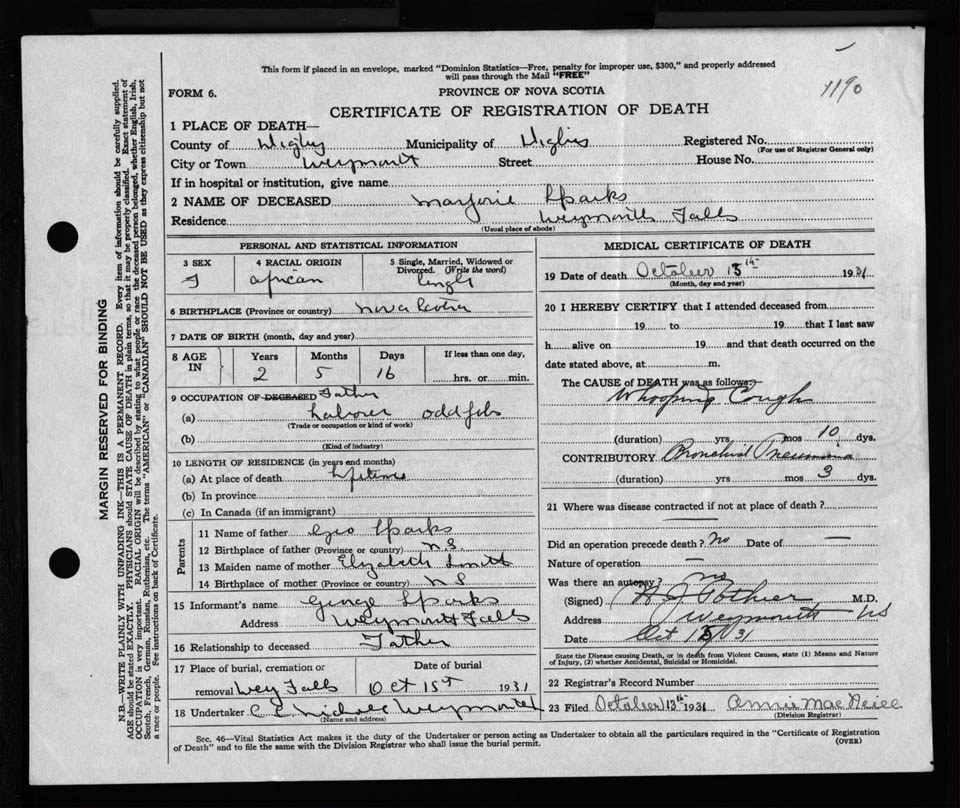 1190
This form if placed in an envelope, marked "Dominion Statistics—Free, penalty for improper use, $300," and properly addressed
will pass through the Mail "FREE"
FORM 6.
PROVINCE OF NOVA SCOTIA
CERTIFICATE OF REGISTRATION OF DEATH
1 PLACE OF DEATH—
County of Digby Municipality of Digby Registered No.
(For use of Registrar General only)
City or Town Weymouth Street House No.
If in hospital or institution, give name
2 NAME OF DECEASED Marjorie Sparks
Residence Weymouth Falls
(Usual place of abode)
PERSONAL AND STATISTICAL INFORMATION
3 SEX 4 RACIAL ORIGIN 5 Single, Married, Widowed or
Divorced. (Write the word)
F African Single
6 BIRTHPLACE (Province or country) Nova Scotia
7 DATE OF BIRTH (month, day and year)
8 AGE IN Years Months Days If less than one day,
2 5 16 hrs. or min.
9 OCCUPATION OF DECEASED Father
(a) Labourer odd jobs
(Trade or occupation or kind of work)
(b)
(Kind of industry)
10 LENGTH OF RESIDENCE (in years and months)
(a) At place of death lifetime
(b) In province
(c) In Canada (if an immigrant)
Parents
11 Name of father Geo Sparks
12 Birthplace of father (Province or country) N.S.
13 Maiden name of mother Elizabeth Smith
14 Birthplace of mother (Province or country) N S
15 Informant's name George Sparks
Address Weymouth Falls
16 Relationship to deceased Father
17 Place of burial, cremation or Date of burial
removal Wey Falls Oct 15th 1931
18 Undertaker Weymouth
(Name and address)
MEDICAL CERTIFICATE OF DEATH
19 Date of death October 13th 1931
(Month, day and year)
20 I HEREBY CERTIFY that I attended deceased from
19 to 19 that I last saw
h alive on 19 and that death occurred on the
date stated above, at m.
The CAUSE of DEATH was as follows:
Whooping Cough
(duration) yrs mos 10 dys.
CONTRIBUTORY Bronchial Pneumonia
(duration) yrs mos 3 dys.
21 Where was disease contracted if not at place of death?
Did an operation precede death? No Date of —
Nature of operation —
Was there an autopsy? no
(Signed) Pothier M.D.
Address Weymouth NS
Date Oct 13/31
State the Disease causing Death, or in death from Violent Causes, state (1) Means and Nature
of Injury, (2) whether Accidental, Suicidal or Homicidal.
22 Registrar's Record Number
23 Filed October 13th 1931 Annie MacNeill
(Division Registrar)
Sec. 46—Vital Statistics Act makes it the duty of the Undertaker or person acting as Undertaker to obtain all the particulars required in the "Certificate of Registration
of Death" and to file the same with the Division Registrar who shall issue the burial permit.
(OVER)
MARGIN RESERVED FOR BINDING
N.B.—WRITE PLAINLY WITH UNFADING INK—THIS IS A PERMANENT RECORD. Every item of information should be carefully supplied.
AGE should be stated EXACTLY. PHYSICIANS should STATE CAUSE OF DEATH in plain terms, so that it may be properly classified. Exact statement of
OCCUPATION is very important. RACIAL ORIGIN will be described by stating to what people or race the deceased person belonged, whether English, Irish,
Scotch, French, German, Russian, Ruthenian, etc. The terms "AMERICAN" or "CANADIAN" SHOULD NOT BE USED as they express citizenship but not
a race or people. See instructions on back of Certificate.